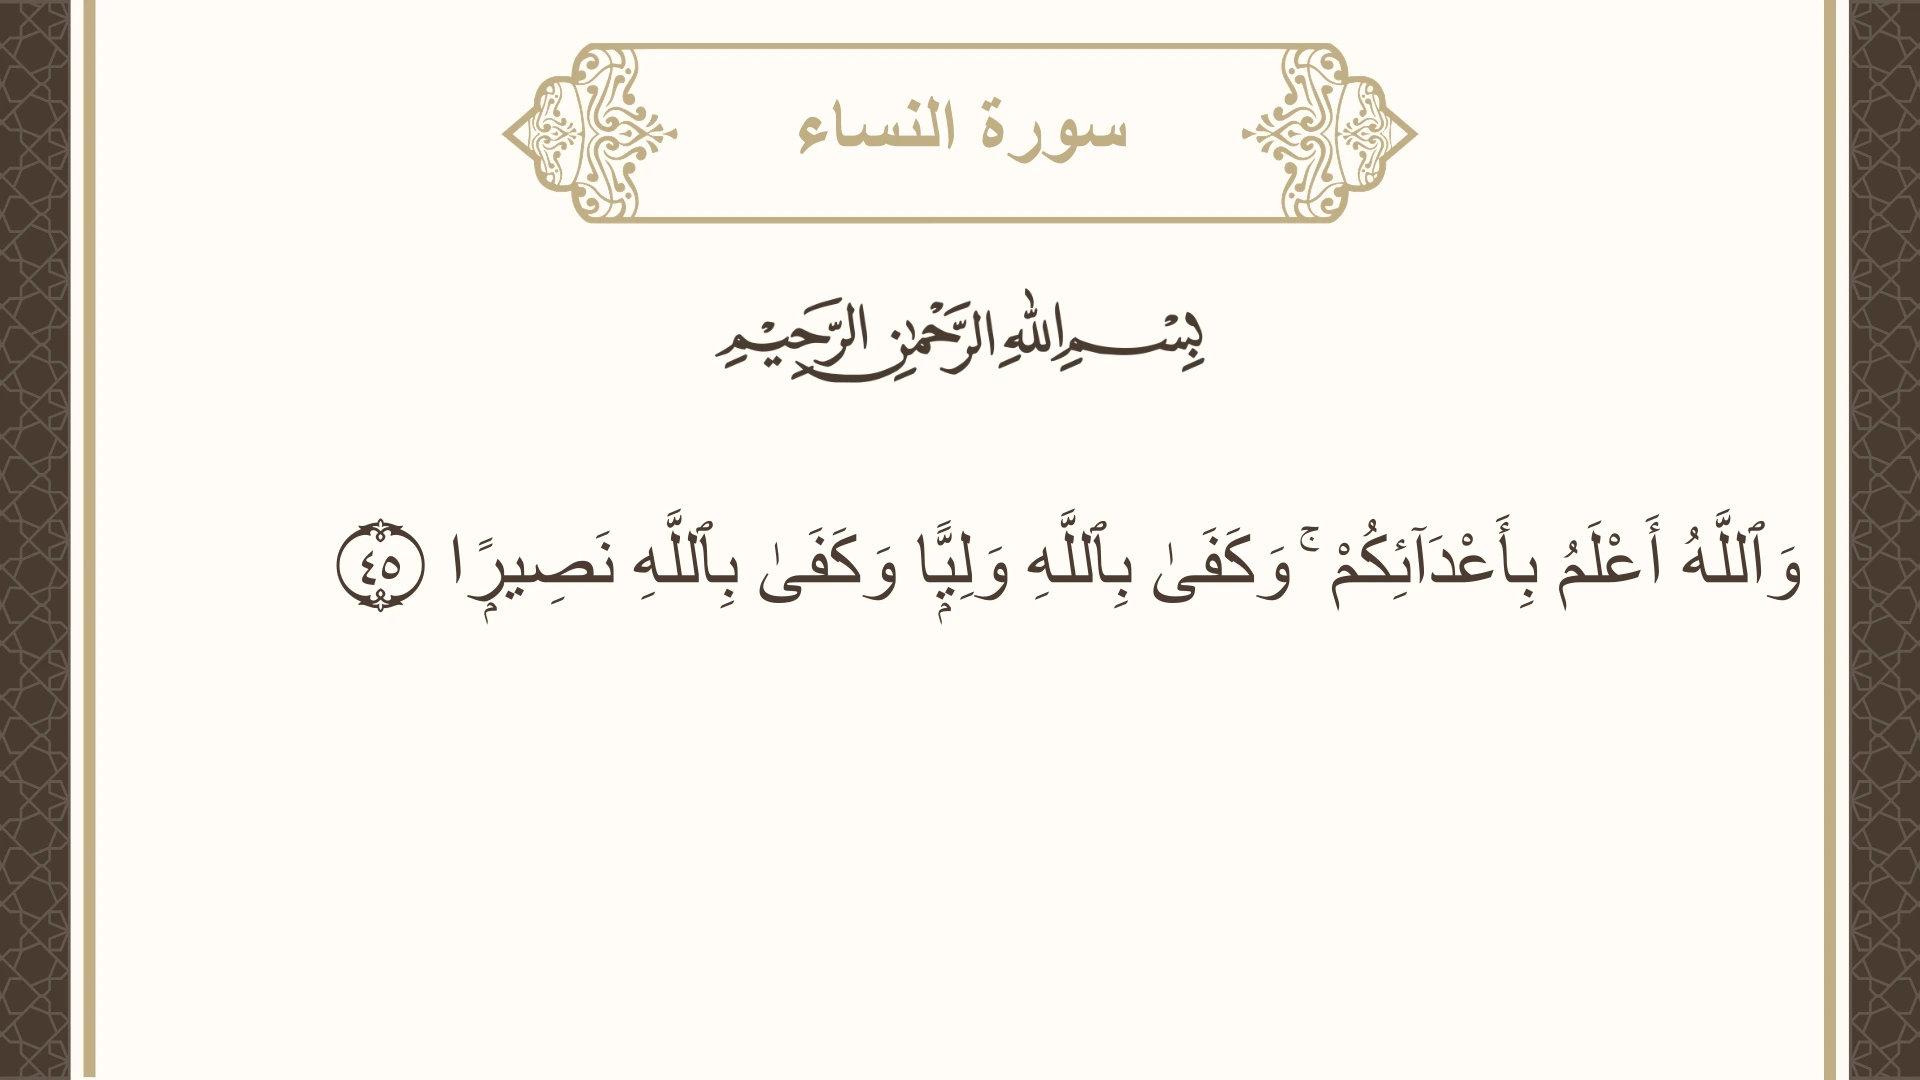 سورة النساء
بِسْمِ اللهِ الرَّحْمٰنِ الرَّحِيْمِ
وَٱللَّهُ أَعْلَمُ بِأَعْدَآئِكُمْ ۚ وَكَفَىٰ بِٱللَّهِ وَلِيًّۭا وَكَفَىٰ بِٱللَّهِ نَصِيرًۭا ٤٥